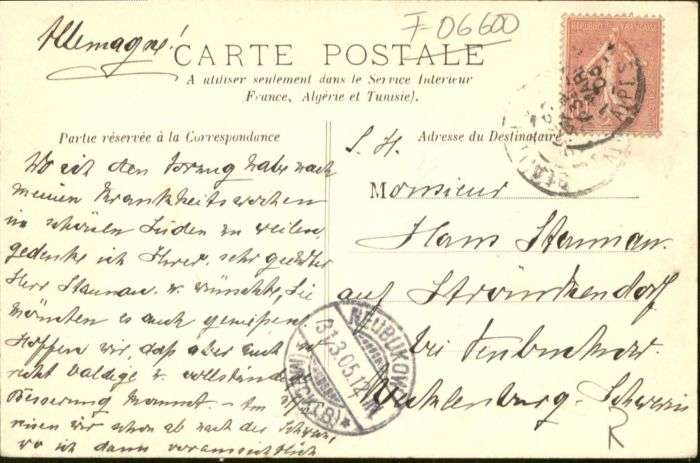 Allemagne!
F-06600
CARTE POSTALE
A utiliser seulement dans le Service Intérieur
France, Algérie et Tunisie).
RÉPUBLIQUE FRANÇAISE
Partie réservée à la Correspondance
Adresse du Destinataire
Wo ich den Vorzug habe nach
meinen Krankheitswochen
im schönen Süden zu weilen,
gedenke ich Ihrer, sehr geehrter
Herr Staunau. u. wünschte, Sie
könnten es auch genießen.
Hoffen wir, daß aber auch
recht baldige u. vollständige
Besserung kommt. - Im
reisen wir schon ab nach der Schweiz,
wo ich dann voraussichtlich
S. H.
Monsieur
Hans Staunau.
auf
bei Neubuckow.
Mecklenburg-Schwerin
NEUBUKOW
31.3.05.
(MECKLB)
ALPES
R